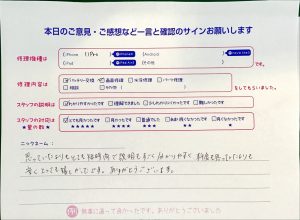 本日のご意見・ご感想など一言と確認のサインお願いします
修理機種は
iPhone 11Pro
iPad
Android
その他
です。
修理内容は
バッテリー交換 画面修理 水没修理 パーツ修理
相談 その他
をしてもらいました。
スタッフの説明は
わかりやすかったです 理解できました 少しわかりにくかった 難しかったです
スタッフの対応は
★星の数★
とても良かったです 良かったです 普通でした
★★★★★ ★★★★ ★★★ ★★ ★
ニックネーム:
思っていたよりもとても短時間で説明もすごく分かりやすく料金も思っていたよりも
安くとっても嬉しかったです。ありがとうございます。
ありがとうございました